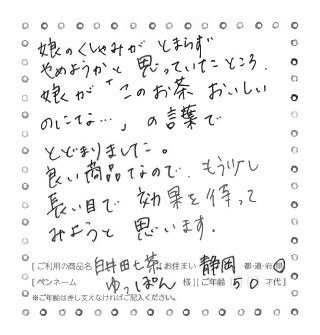 娘のくしゃみが とまらず
やめようかと 思っていたところ、
娘が「このお茶 おいしい
のにな…」の言葉で
とどまりました。
良い商品なので、もう少し
長い目で 効果を待って
みようと 思います。
[ご利用の商品名 白井田七茶 ][お住まい 静岡 都・道・府・県]
[ペンネーム ゆっぽん 様][ご年齢 50 才代]
※ご年齢は差し支えなければご記入ください。